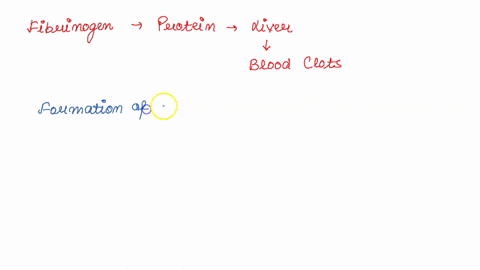 Fibrinogen → Protein → Liver
↓
Blood Clots
Formation of